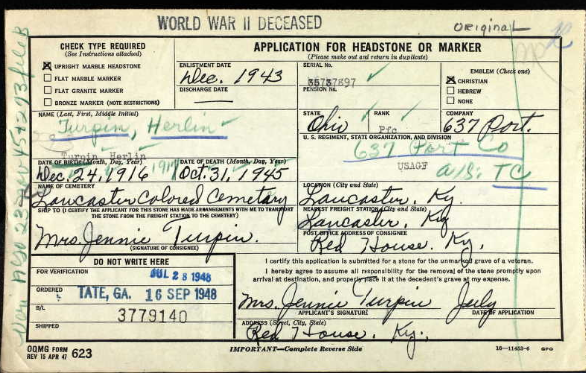 WORLD WAR II DECEASED
Original
CHECK TYPE REQUIRED
(See Instructions attached)
X UPRIGHT MARBLE HEADSTONE
FLAT MARBLE MARKER
FLAT GRANITE MARKER
BRONZE MARKER (NOTE RESTRICTIONS)
APPLICATION FOR HEADSTONE OR MARKER
(Please make out and return in duplicate)
ENLISTMENT DATE
Dec. 1943
DISCHARGE DATE
SERIAL No.
35737897
PENSION No.
EMBLEM (Check one)
X CHRISTIAN
HEBREW
NONE
NAME (Last, First, Middle Initial)
Turpin, Herlin
Turpin, Herlin
STATE
Ohio
RANK
Pfc
COMPANY
637 Port.
U. S. REGIMENT, STATE ORGANIZATION, AND DIVISION
637 Port Co
USAGF
TC
DATE OF BIRTH (Month, Day, Year)
Dec. 24, 1916
DATE OF DEATH (Month, Day, Year)
Oct. 31, 1945
NAME OF CEMETERY
Lancaster Colored Cemetary
LOCATION (City and State)
Lancaster, Ky.
SHIP TO (I CERTIFY THE APPLICANT FOR THIS STONE HAS MADE ARRANGEMENTS WITH ME TO TRANSPORT THE STONE FROM THE STATION TO THE CEMETERY)
Mrs. Jennie Turpin.
(SIGNATURE OF CONSIGNEE)
NEAREST FREIGHT STATION (City and State)
Lancaster, Ky
POST OFFICE ADDRESS OF CONSIGNEE
Red House. Ky.
DO NOT WRITE HERE
FOR VERIFICATION
JUL 28 1948
ORDERED
TATE, GA. 16 SEP 1948
B/L
3779140
SHIPPED
I certify this application is submitted for a stone for the unmarked grave of a veteran.
I hereby agree to assume all responsibility for the removal of the stone promptly upon arrival at destination, and properly place it at the decedent's grave at my expense.
Mrs. Jennie Turpin July
APPLICANT'S SIGNATURE
DATE OF APPLICATION
ADDRESS (Street, City, State)
Red House, Ky.
OQMG FORM
REV 15 APR 47 623
IMPORTANT—Complete Reverse Side
GPO